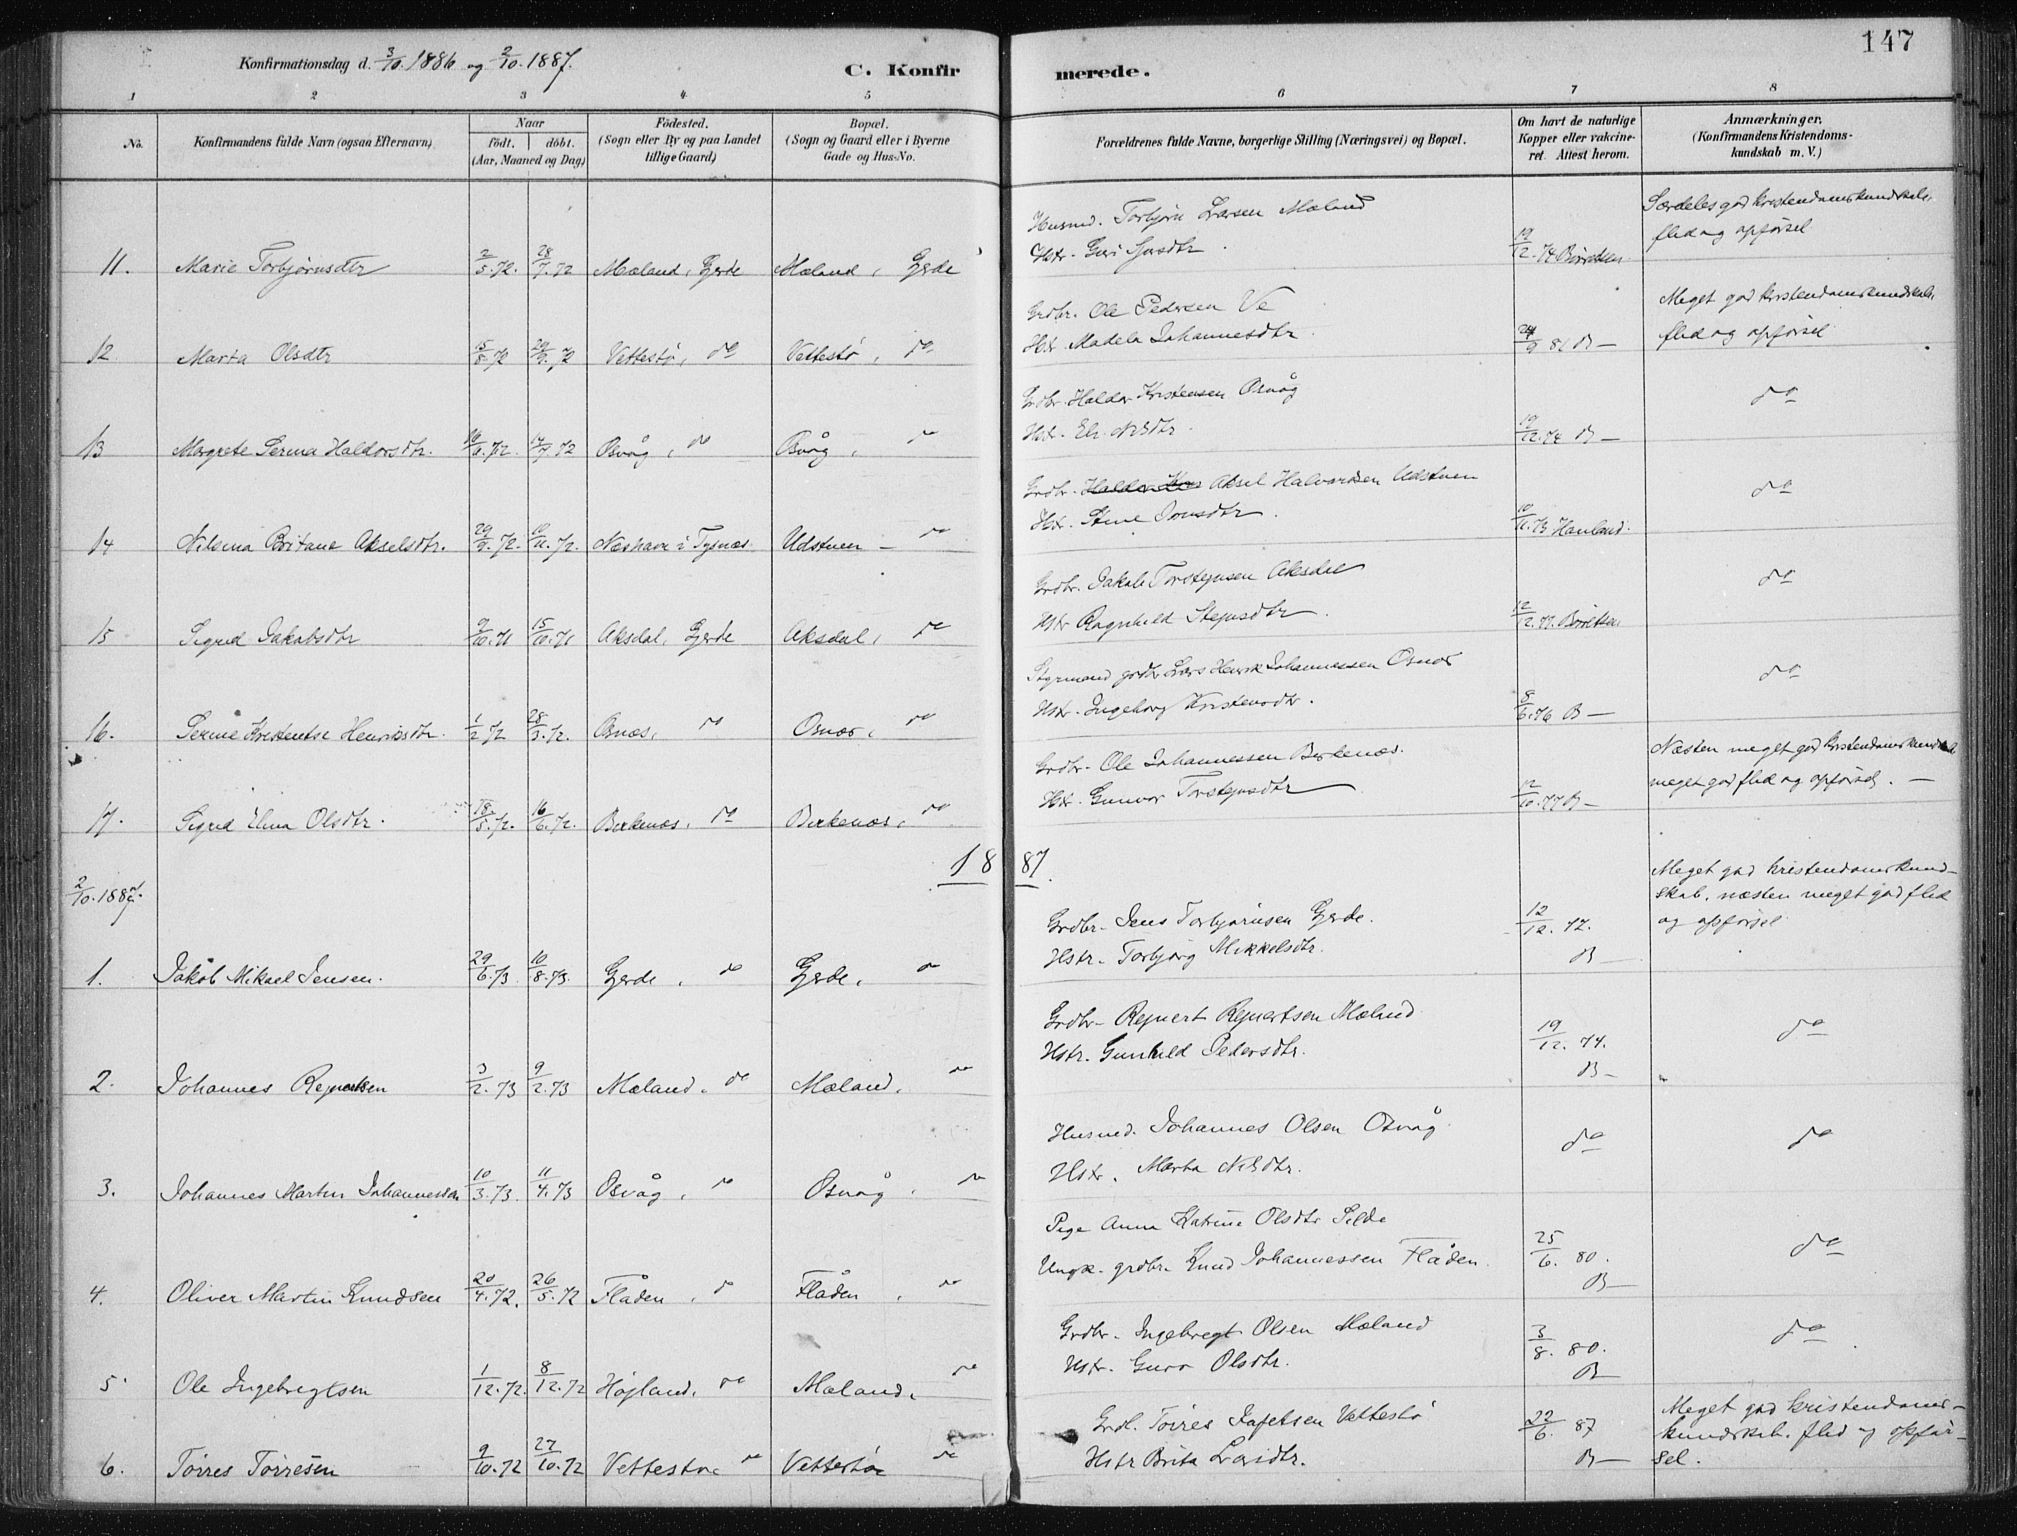 147
Konfirmationsdag d. 3/10. 1886 og 2/10. 1887.
C. Konfir merede.
1 2 3 4 5 6 7 8
No. Konfirmandens fulde Navn (ogsaa Efternavn) Naar født. døbt. (Aar, Maaned og Dag) Fødested. (Sogn eller By og paa Landet tillige Gaard) Bopæl. (Sogn og Gaard eller i Byerne Gade og Hus-No. Forældrenes fulde Navne, borgerlige Stilling (Næringsvei) og Bopæl. Om havt de naturlige Kopper eller vakcineret. Attest herom. Anmærkninger. (Konfirmandens Kristendomskundskab m. V.)
Husmd. Torbjørn Larsen Mæland Særdeles god kristendomskundskab,
Hstr. Guri flid og opførsel
11. Marie Torbjørnsdtr 2/5.72. 28/7.72 Mæland, Gjerde Mæland, Gjerde 19/12.74 Børretsen
Grdbr. Ole Pedersen Ve Meget god kristendomskundskab,
Hstr. Madela Johannesdtr flid og opførsel
12 Marta Olsdtr 15/8.72 29/9.72 Vettestø, do Vettestø, do 24/9 81 B—
Grdbr. Haldor Kristensen Osvåg do
Hstr. Eli Nilsdtr.
13 Margrete Serina Haldorsdtr. 72. 14/7.72 Osvåg, do Osvåg, do 19/12.74 B—
Grdbr. Aksel Halvorsen Udstuen do
Hstr. Stine
14 Nilsina Britane Akselsdtr. 29/9.72. 10/11.72. Næshavn i Tysnæs. Udstuen — do 73 Hauland.
Grdbr. Jakob Torstejnsen Aksdal do
Hstr Ragnhild Stejnsdtr.
15 Sigrid Jakobsdtr 9/10.71 15/10.71 Aksdal, Gjerde Aksdal, do 12/12.77. Børretsen
Styrmand grdbr Lars Henrik Johannessen Osnæs do
Hstr. Ingeborg Kristensdtr.
16. Serine Kristense Henriksdtr. 1/2 72 28/3.72. Osnæs, do Osnæs, do 8/6.76 B—
Grdbr. Ole Johannessen Birkenæs. Næsten meget god kristendomskundskab
Hstr. Gunvor Torstejnsdtr meget god flid og opførsel. —
17. Sigrid Elina Olsdtr. 18/5.72. 16/6.72. Birkenæs, do Birkenæs, do 12/10.77 B—
1887.
2/10.1887.
Grdbr. Jens Torbjørnsen Gjerde. 12/12.72. Meget god kristendomskund-
skab, næsten meget god flid
Hstr. Torbjørg Mikkelsdtr. B— og opførsel
1. Jakob Mikael Jensen. 29/6.73 10/8.73. Gjerde, do Gjerde, do
Grdbr. Rejnert Rejnertsen Mæland 19/12.74. do
Hstr. Gunhild Pedersdtr. B—
2. Johannes Rejnertsen 3/2.73 9/2.73 Mæland, do Mæland, do
Husmd. Johannes Olsen Osvåg do do
Hstr. Marta Nilsdtr.
3. Johannes Martin Johannessen 10/3.73. 11/4.73 Osvåg, do Osvåg, do
Pige Anna Katrine Olsdtr Silde 25/6. 80. do
Ungk. grdbr. Knud Johannessen Flåden. B—
4. Oliver Martin Knudsen 20/4.72. 26/5.72 Flåden, do Flåden, do
Grdbr. Ingebregt Olsen Mæland 3/8. 80. do
Hstr. Guro Olsdtr. B—
5 Ole Ingebregtsen 1/12.72. 8/12.72 Højland, do Mæland, do
Grdb. Tørres Jafetsen Vettestø 22/6. 87 Meget god kristendoms-
kundskab, flid og opfør-
Hstr Brita Larsdtr. B— sel.
6. Tørres Tørresen 9/10.72 27/10.72 Vettestø, do Vettestø, do